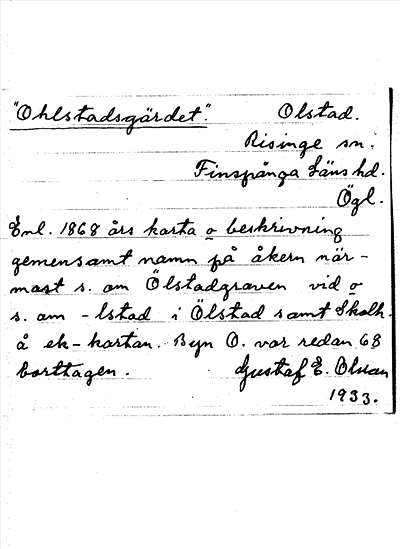 "Ohlstadsgärdet". Olstad.
Risinge sn.
Finspånga Läns hd.
Ögl.
Enl. 1868 års karta o beskrivning
gemensamt namn på åkern när-
mast s. om Ölstadgraven vid o
s. om -lstad i Ölstad samt Skolh.
å ek-kartan. Byn O. var redan 68
borttagen. Gustaf E. Olsson
1933.